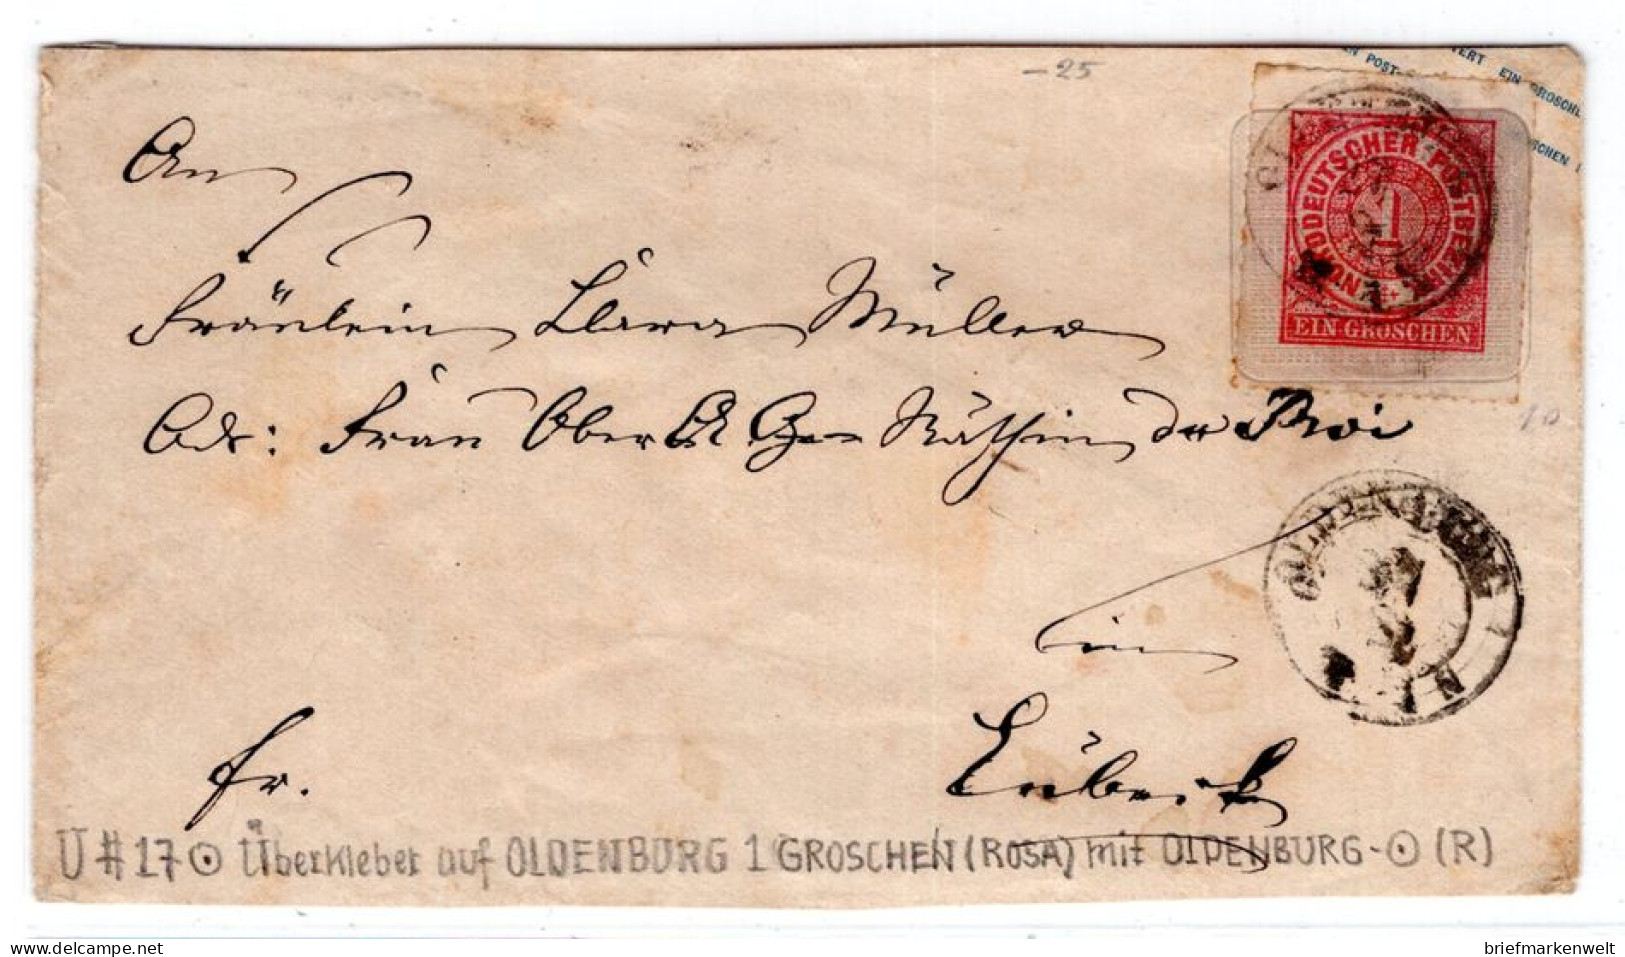 - 25
VERT EIN GROSCHE
EN POST-
SCHEN
NORDDEUTSCHER POSTBEZIRK
1
EIN GROSCHEN
An
Fräulein Clara Müller
Adr: Frau Ober Räthin
10
OLDENBURG
in
Lübeck
fr.
U # 17 ⊙ Überkleber auf OLDENBURG 1 GROSCHEN (ROSA) mit OLDENBURG-⊙ (R)
briefmarkenwelt
www.delcampe.net